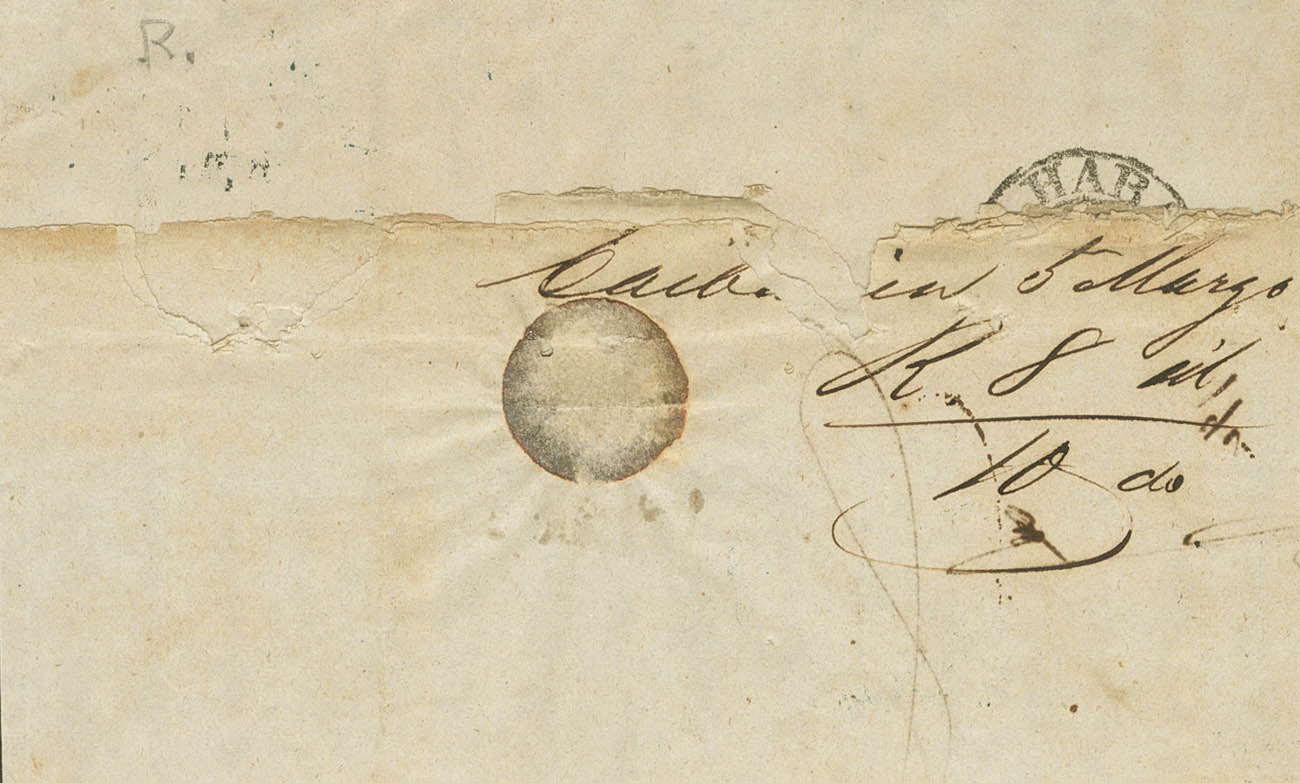 R.
HAB
Caiba in 5 Marzo
R. 8 id,
10 do